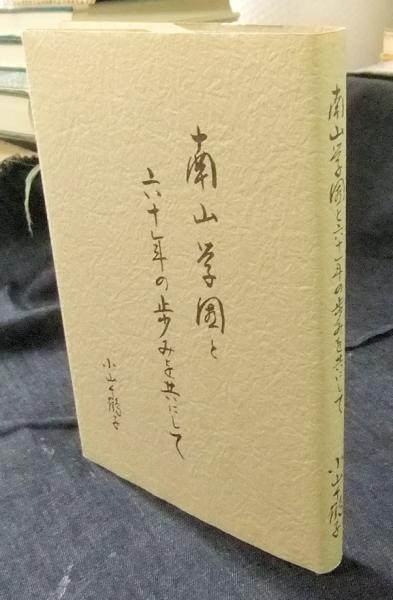 南山学園と
六十年の歩みを共にして
小山千鶴子
南山学園と六十年の歩みを共にして
小山千鶴子